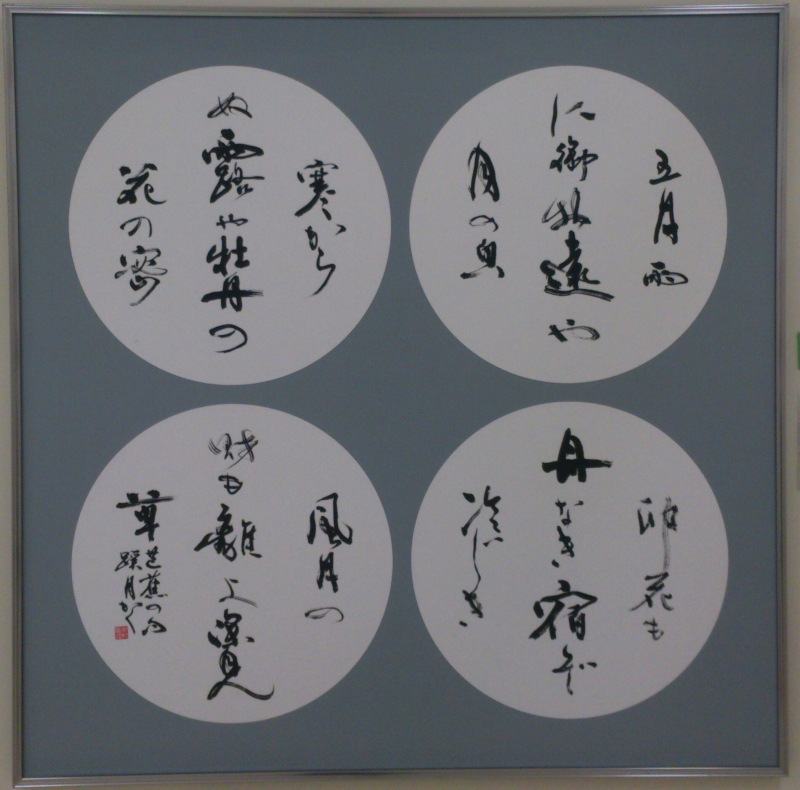 五月雨
に御物遠や
月の皃
寒から
ぬ露や牡丹の
花の蜜
卯花も
母なき宿ぞ
冷じき
風月の
財も離よ深見
草
芭蕉の句
月かく